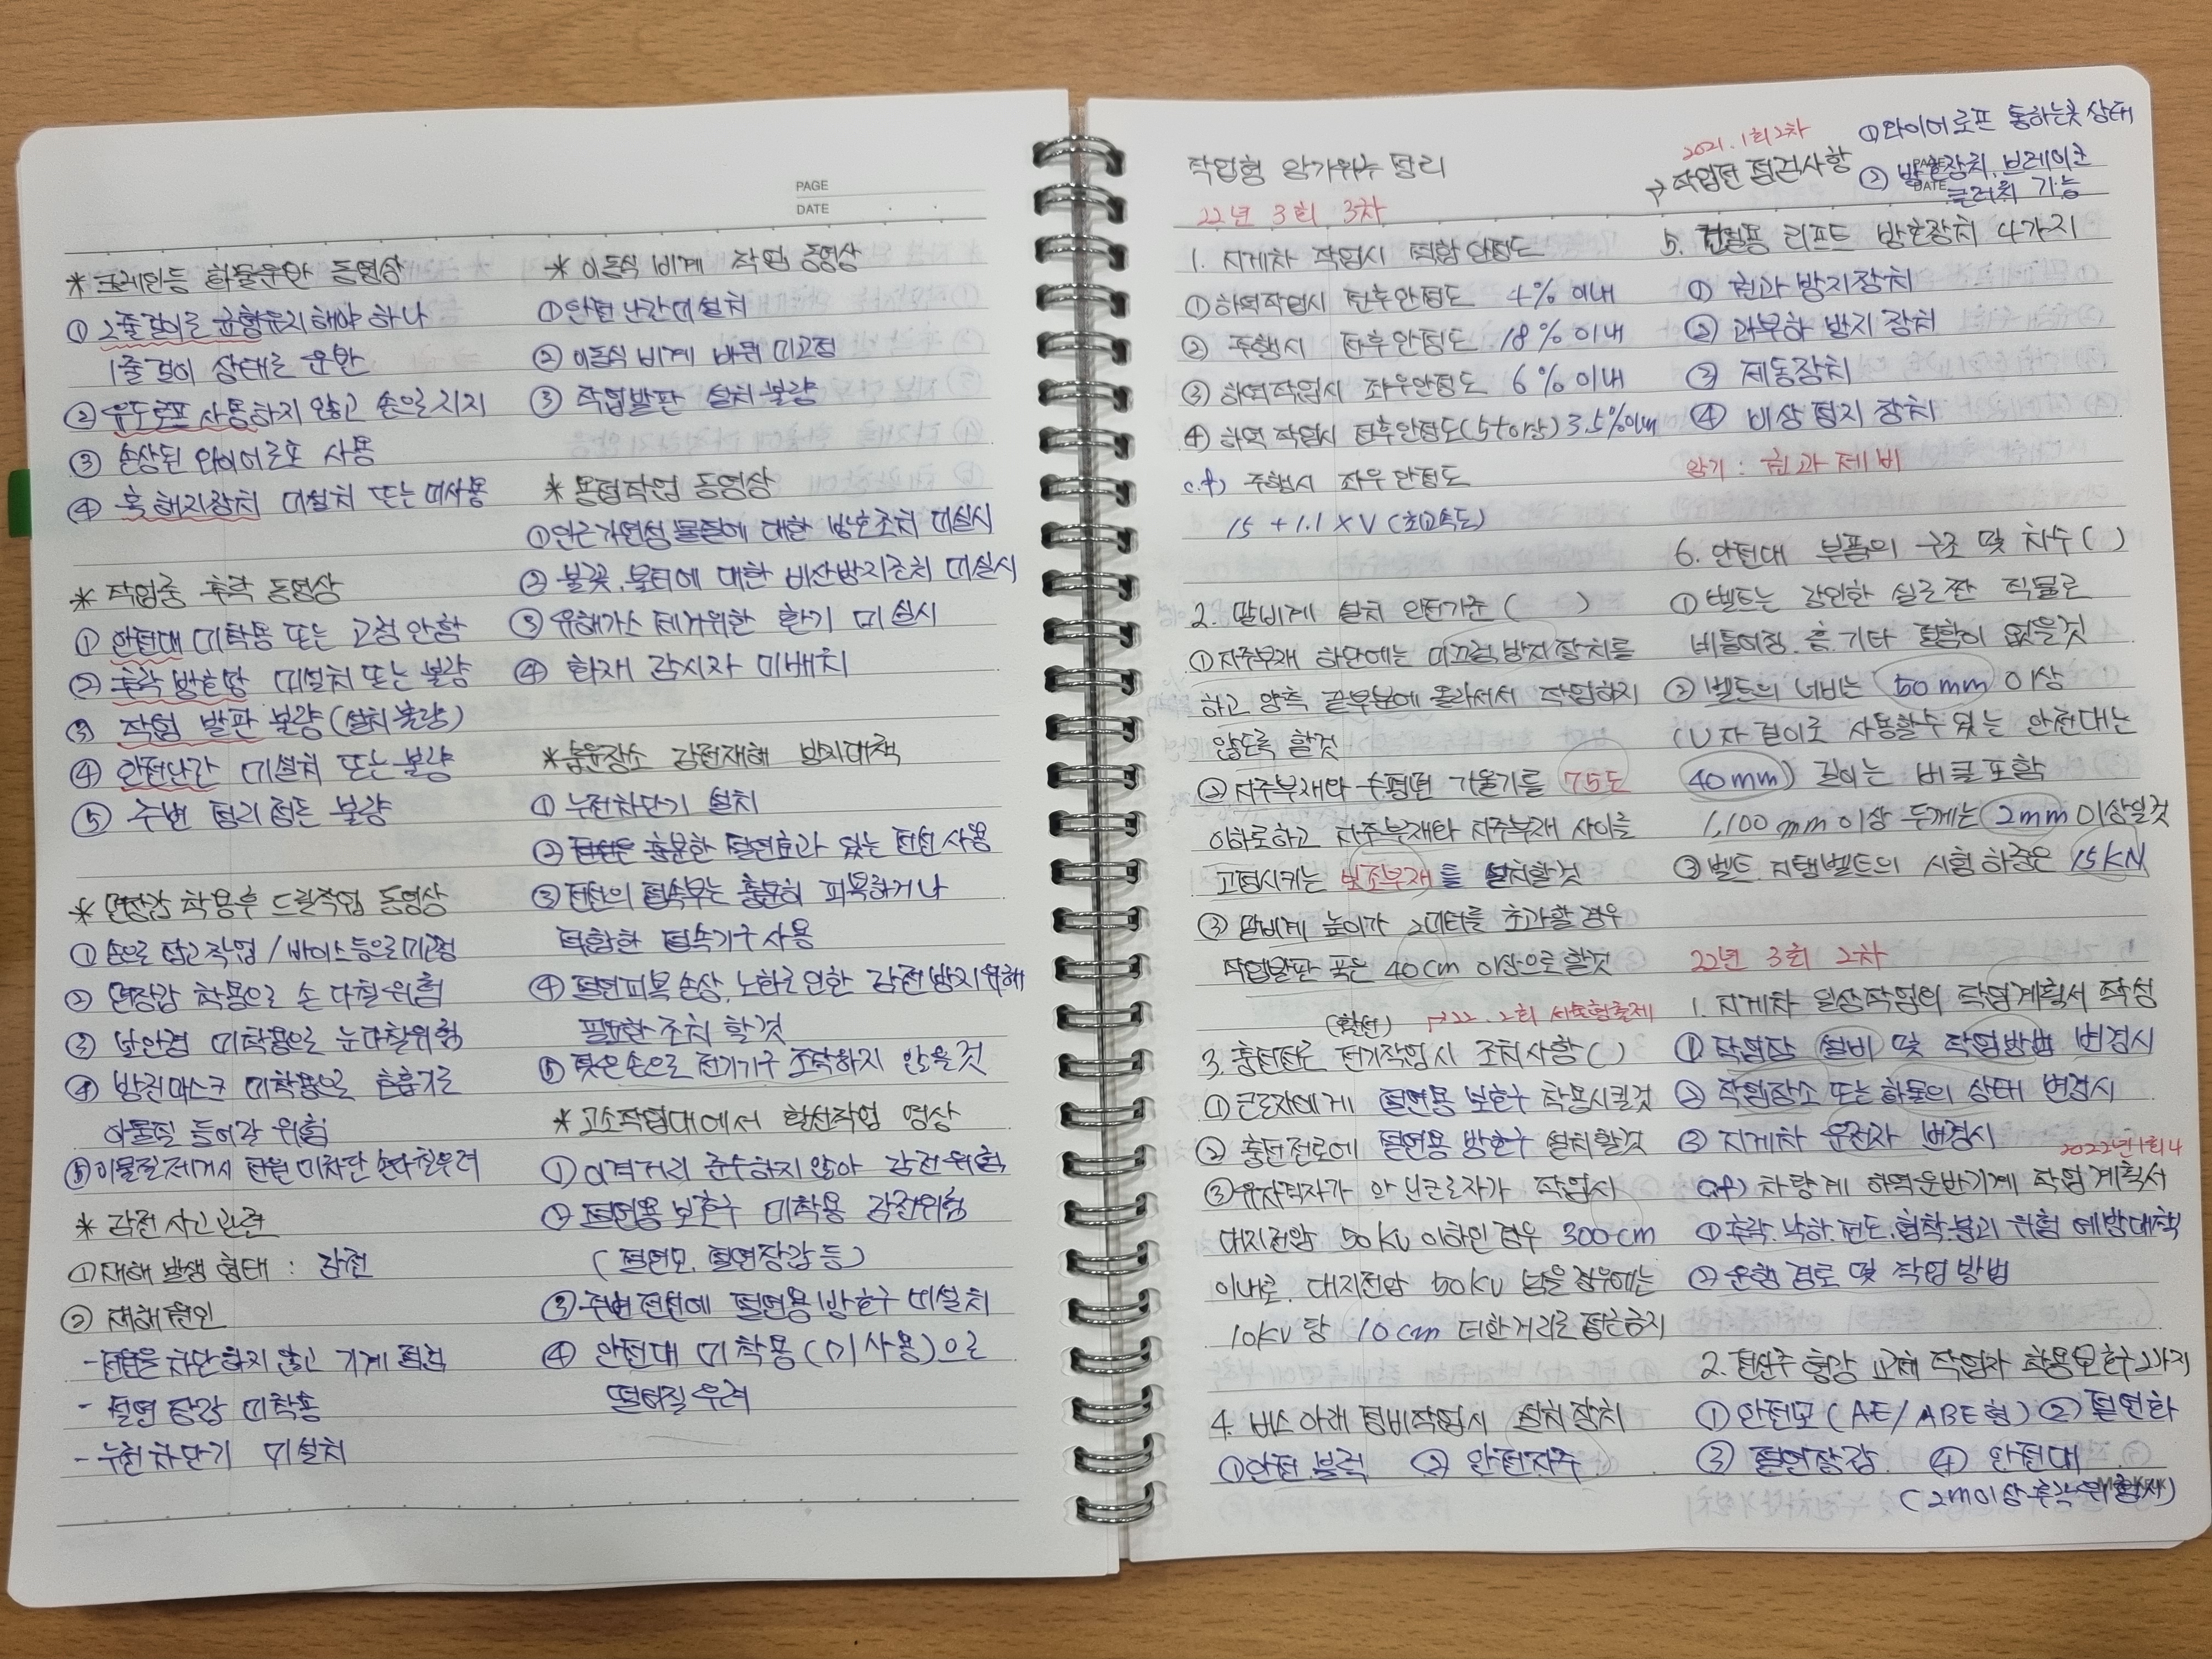 PAGE
DATE
* 크레인등 화물운반 동영상
① 2줄걸이로 균형유지해야 하나
1줄걸이 상태로 운반
② 유도로프 사용하지 않고 손으로 지지
③ 손상된 와이어로프 사용
④ 훅 해지장치 미설치 또는 미사용
* 작업중 추락 동영상
① 안전대 미착용 또는 고정 안함
② 추락 방호망 미설치 또는 불량
③ 작업 발판 불량(설치불량)
④ 안전난간 미설치 또는 불량
⑤ 주변 정리정돈 불량
* 면장갑 착용후 드릴작업 동영상
① 손으로 잡고 작업 / 바이스등으로 미고정
② 면장갑 착용으로 손 다칠 위험
③ 보안경 미착용으로 눈다칠위험
④ 방진마스크 미착용으로 호흡기로
이물질 들어갈 위험
⑤ 이물질제거시 전원 미차단 손다칠우려
* 감전 사고 관련
① 재해 발생 형태 : 감전
② 재해원인
- 전원을 차단하지 않고 기계 점검
- 절연 장갑 미착용
- 누전차단기 미설치
* 이동식 비계 작업 동영상
① 안전난간 미설치
② 이동식 비계 바퀴 미고정
③ 작업발판 설치 불량
* 용접작업 동영상
① 인근가연성 물질에 대한 방호조치 미실시
② 불꽃, 불티에 대한 비산방지조치 미실시
③ 유해가스 제거위한 환기 미실시
④ 화재 감시자 미배치
* 습윤장소 감전재해 방지대책
① 누전차단기 설치
② 전선은 충분한 절연효과 있는 전선 사용
③ 전선의 접속부는 충분히 피복하거나
적합한 접속기구 사용
④ 절연피복 손상, 노화로 인한 감전방지 위해
필요한 조치 할것
⑤ 젖은손으로 전기기구 조작하지 않을것
* 고소작업대에서 활선작업 영상
① 이격거리 준수하지 않아 감전위험
② 절연용 보호구 미착용 감전위험
(절연모, 절연장갑 등)
③ 주변전선에 절연용 방호구 미설치
④ 안전대 미착용(미사용)으로
떨어질 우려
작업형 암기위주 정리
22년 3회 3차
1. 지게차 작업시 적합 안정도
① 하역작업시 전후안정도 4% 이내
② 주행시 전후안정도 18% 이내
③ 하역작업시 좌우안정도 6% 이내
④ 하역작업시 전후안정도(5t이상) 3.5%이내
c.f) 주행시 좌우 안정도
15 + 1.1 × V (최고속도)
2. 말비계 설치 안전기준 ( )
① 지주부재 하단에는 미끄럼방지장치를
하고 양측 끝부분에 올라서서 작업하지
않도록 할것
② 지주부재와 수평면 기울기를 75도
이하로하고 지주부재와 지주부재 사이를
고정시키는 보조부재를 설치할것
③ 말비계 높이가 2미터를 초과할 경우
작업발판 폭은 40cm 이상으로 할것
(활선) → 22. 2회 서술형출제
3. 충전전로 전기작업시 조치사항 ( )
① 근로자에게 절연용 보호구 착용시킬것
② 충전전로에 절연용 방호구 설치할것
③ 유자격자가 아닌근로자가 작업시
대지전압 50kV 이하인 경우 300cm
이내로, 대지전압 50kV 넘을 경우에는
10kV 당 10cm 더한거리로 접근금지
4. 버스 아래 정비작업시 설치 장치
① 안전 블럭 ② 안전지주
2021. 1회2차
→ 작업전 점검사항
① 와이어로프 통하는곳 상태
② 방호장치, 브레이크
클러치 기능
DATE
5. 건설용 리프트 방호장치 4가지
① 권과 방지장치
② 과부하 방지 장치
③ 제동장치
④ 비상정지 장치
암기 : 권과 제비
6. 안전대 부품의 구조 및 치수 ( )
① 벨트는 강인한 실로 짠 직물로
비틀어짐, 흠, 기타 결함이 없을것
② 벨트의 너비는 50mm 이상
(U자 걸이로 사용할수 있는 안전대는
40mm) 길이는 버클포함
1,100mm 이상 두께는 2mm 이상일것
③ 벨트 지탱벨트의 시험 하중은 15KN
22년 3회 2차
1. 지게차 일상작업의 작업계획서 작성
① 작업장 설비 및 작업방법 변경시
② 작업장소 또는 화물의 상태 변경시
③ 지게차 운전자 변경시
2022년1회
c.f) 차량계 하역운반기계 작업계획서
① 추락.낙하.전도.협착.붕괴 위험 예방대책
② 운행 경로 및 작업 방법
2. 전신주 형강 교체 작업자 착용보호구 2가지
① 안전모 (AE/ABE형) ② 절연화
③ 절연장갑 ④ 안전대
(2m이상 추락위험시)